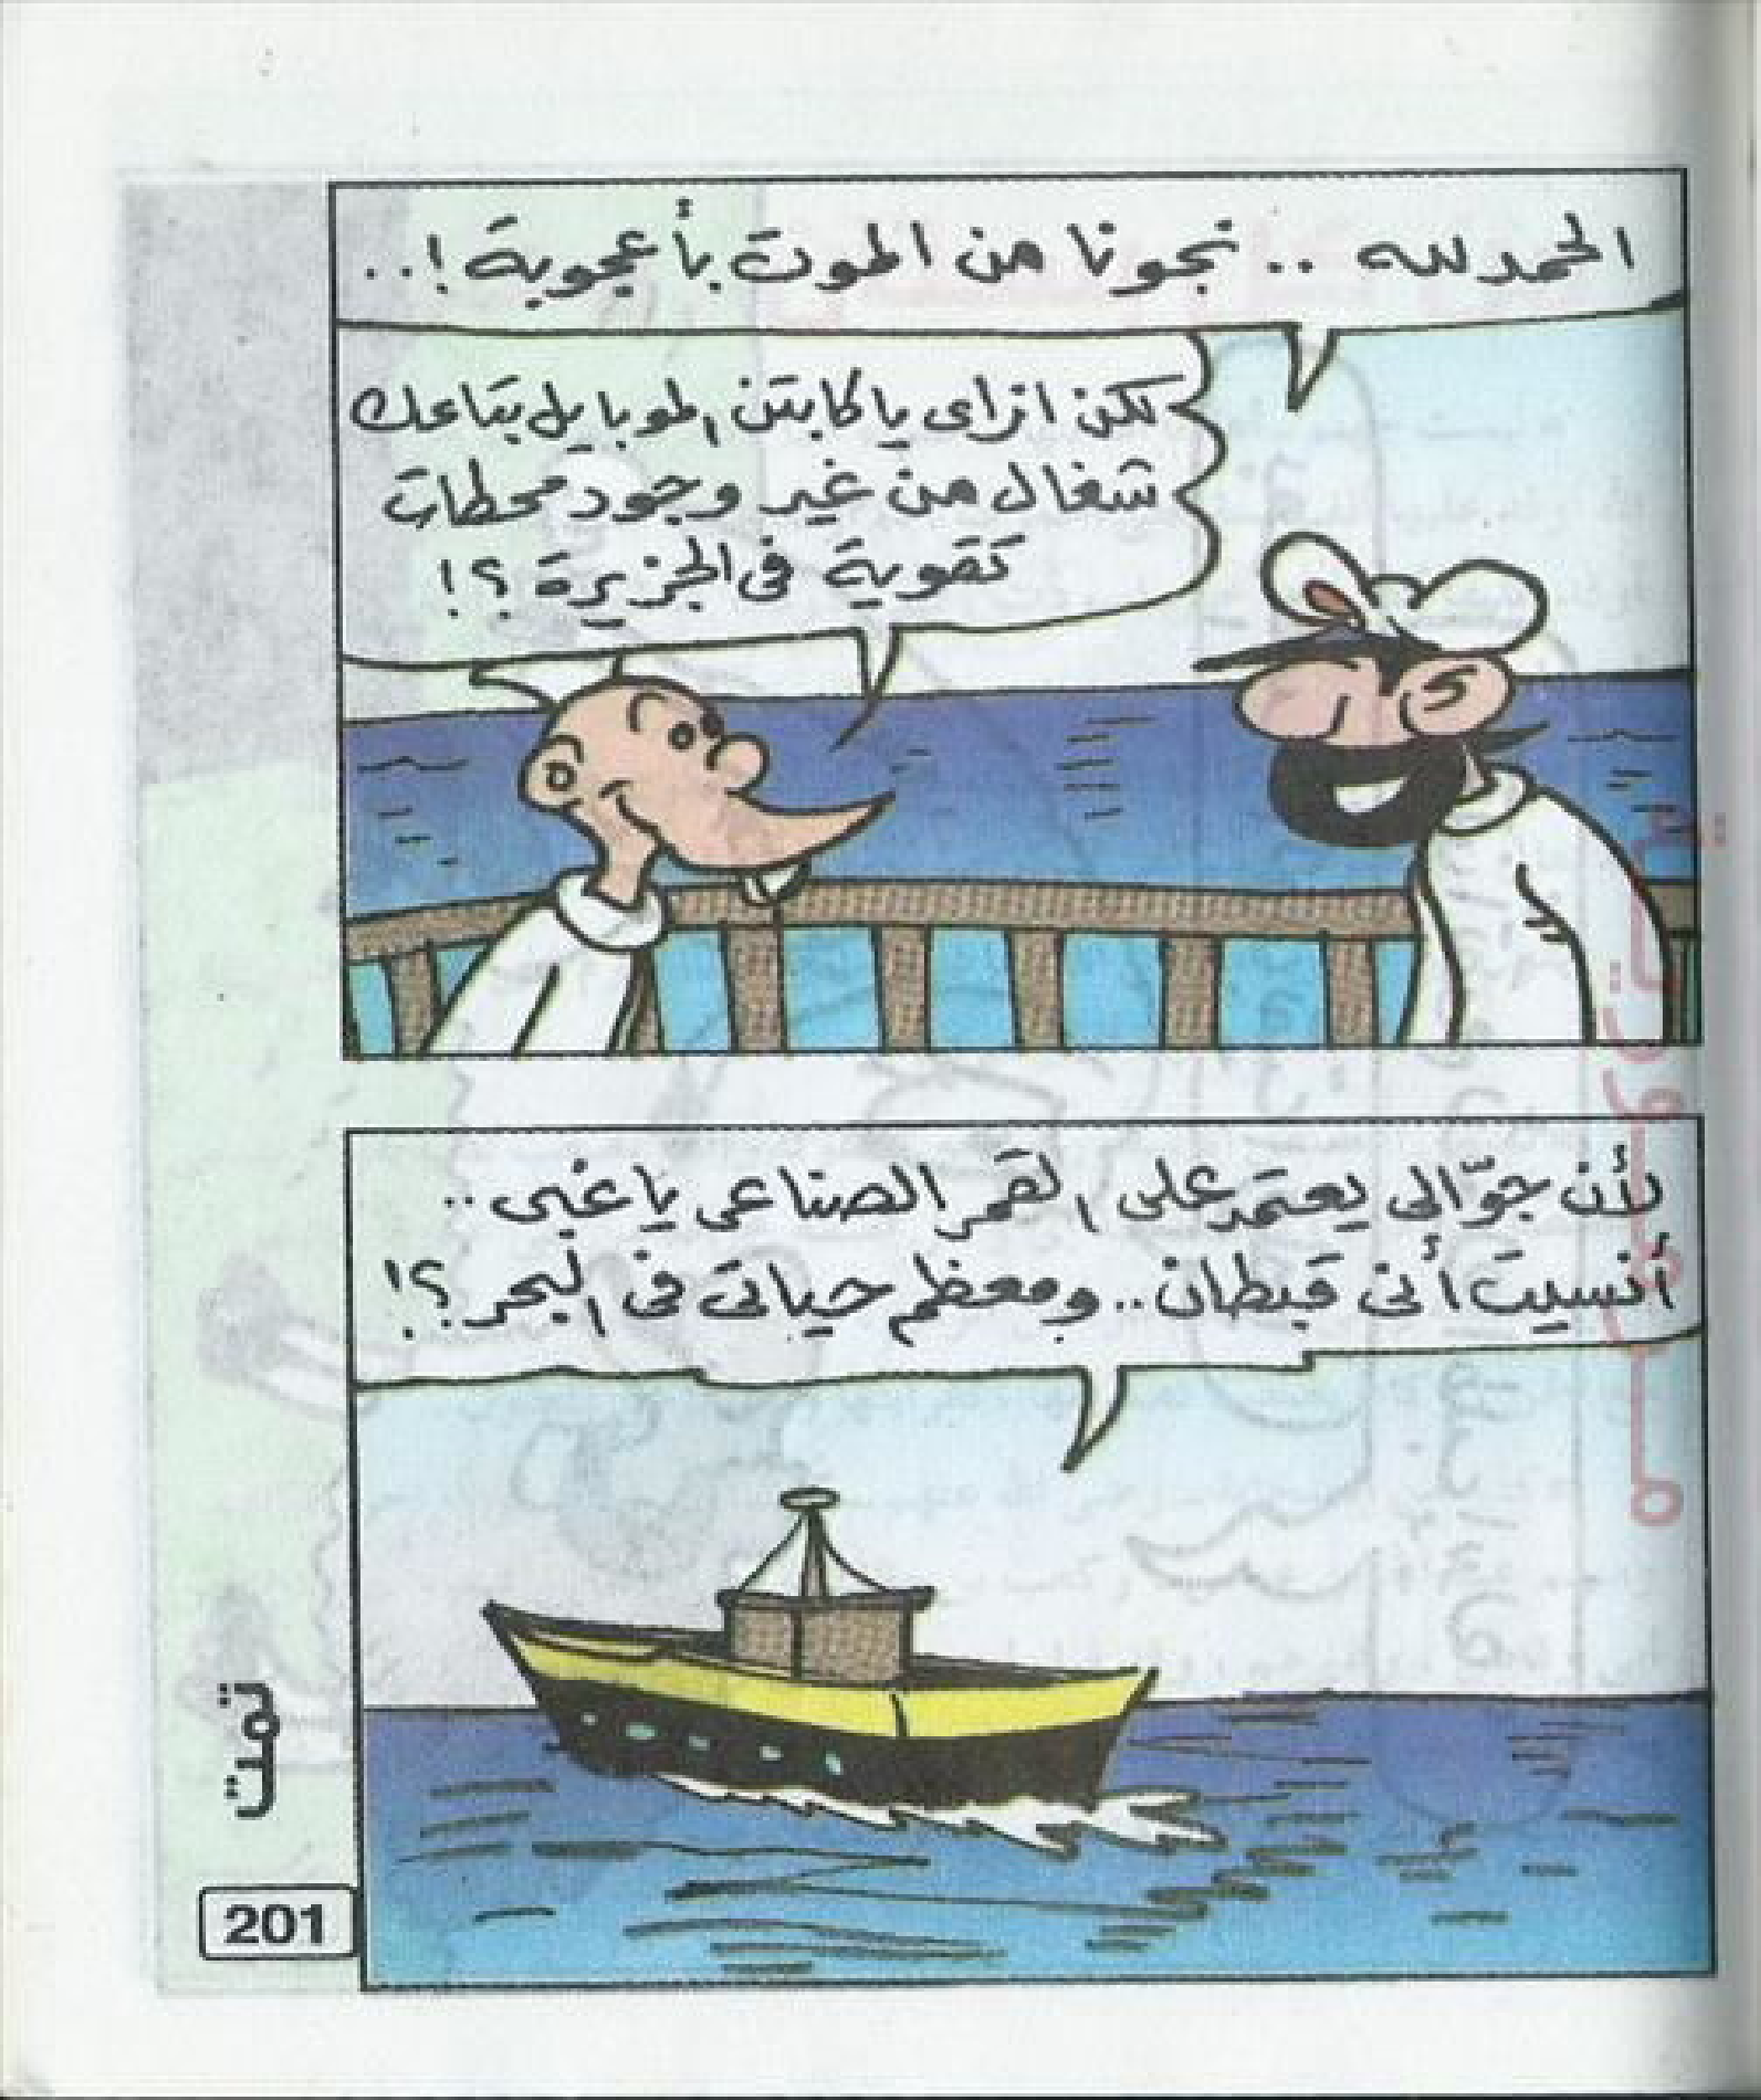 الحمد لله .. نجونا من الموت بأعجوبة !..
لكن ازاى يا كابتن الموبايل بتاعك
شغال من غير وجود محطات
تقوية فى الجزيرة ؟!
لأن جوّالى يعتمد على القمر الصناعى يا غبى ..
أنسيت أنى قبطان .. ومعظم حياتى فى البحر ؟!
تمت
201